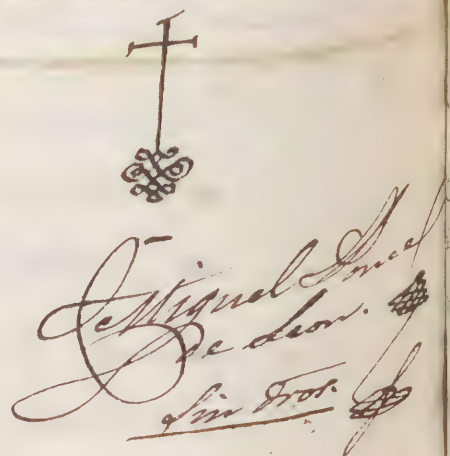 Miguel Doncel
de Leon.
Sin Dros.